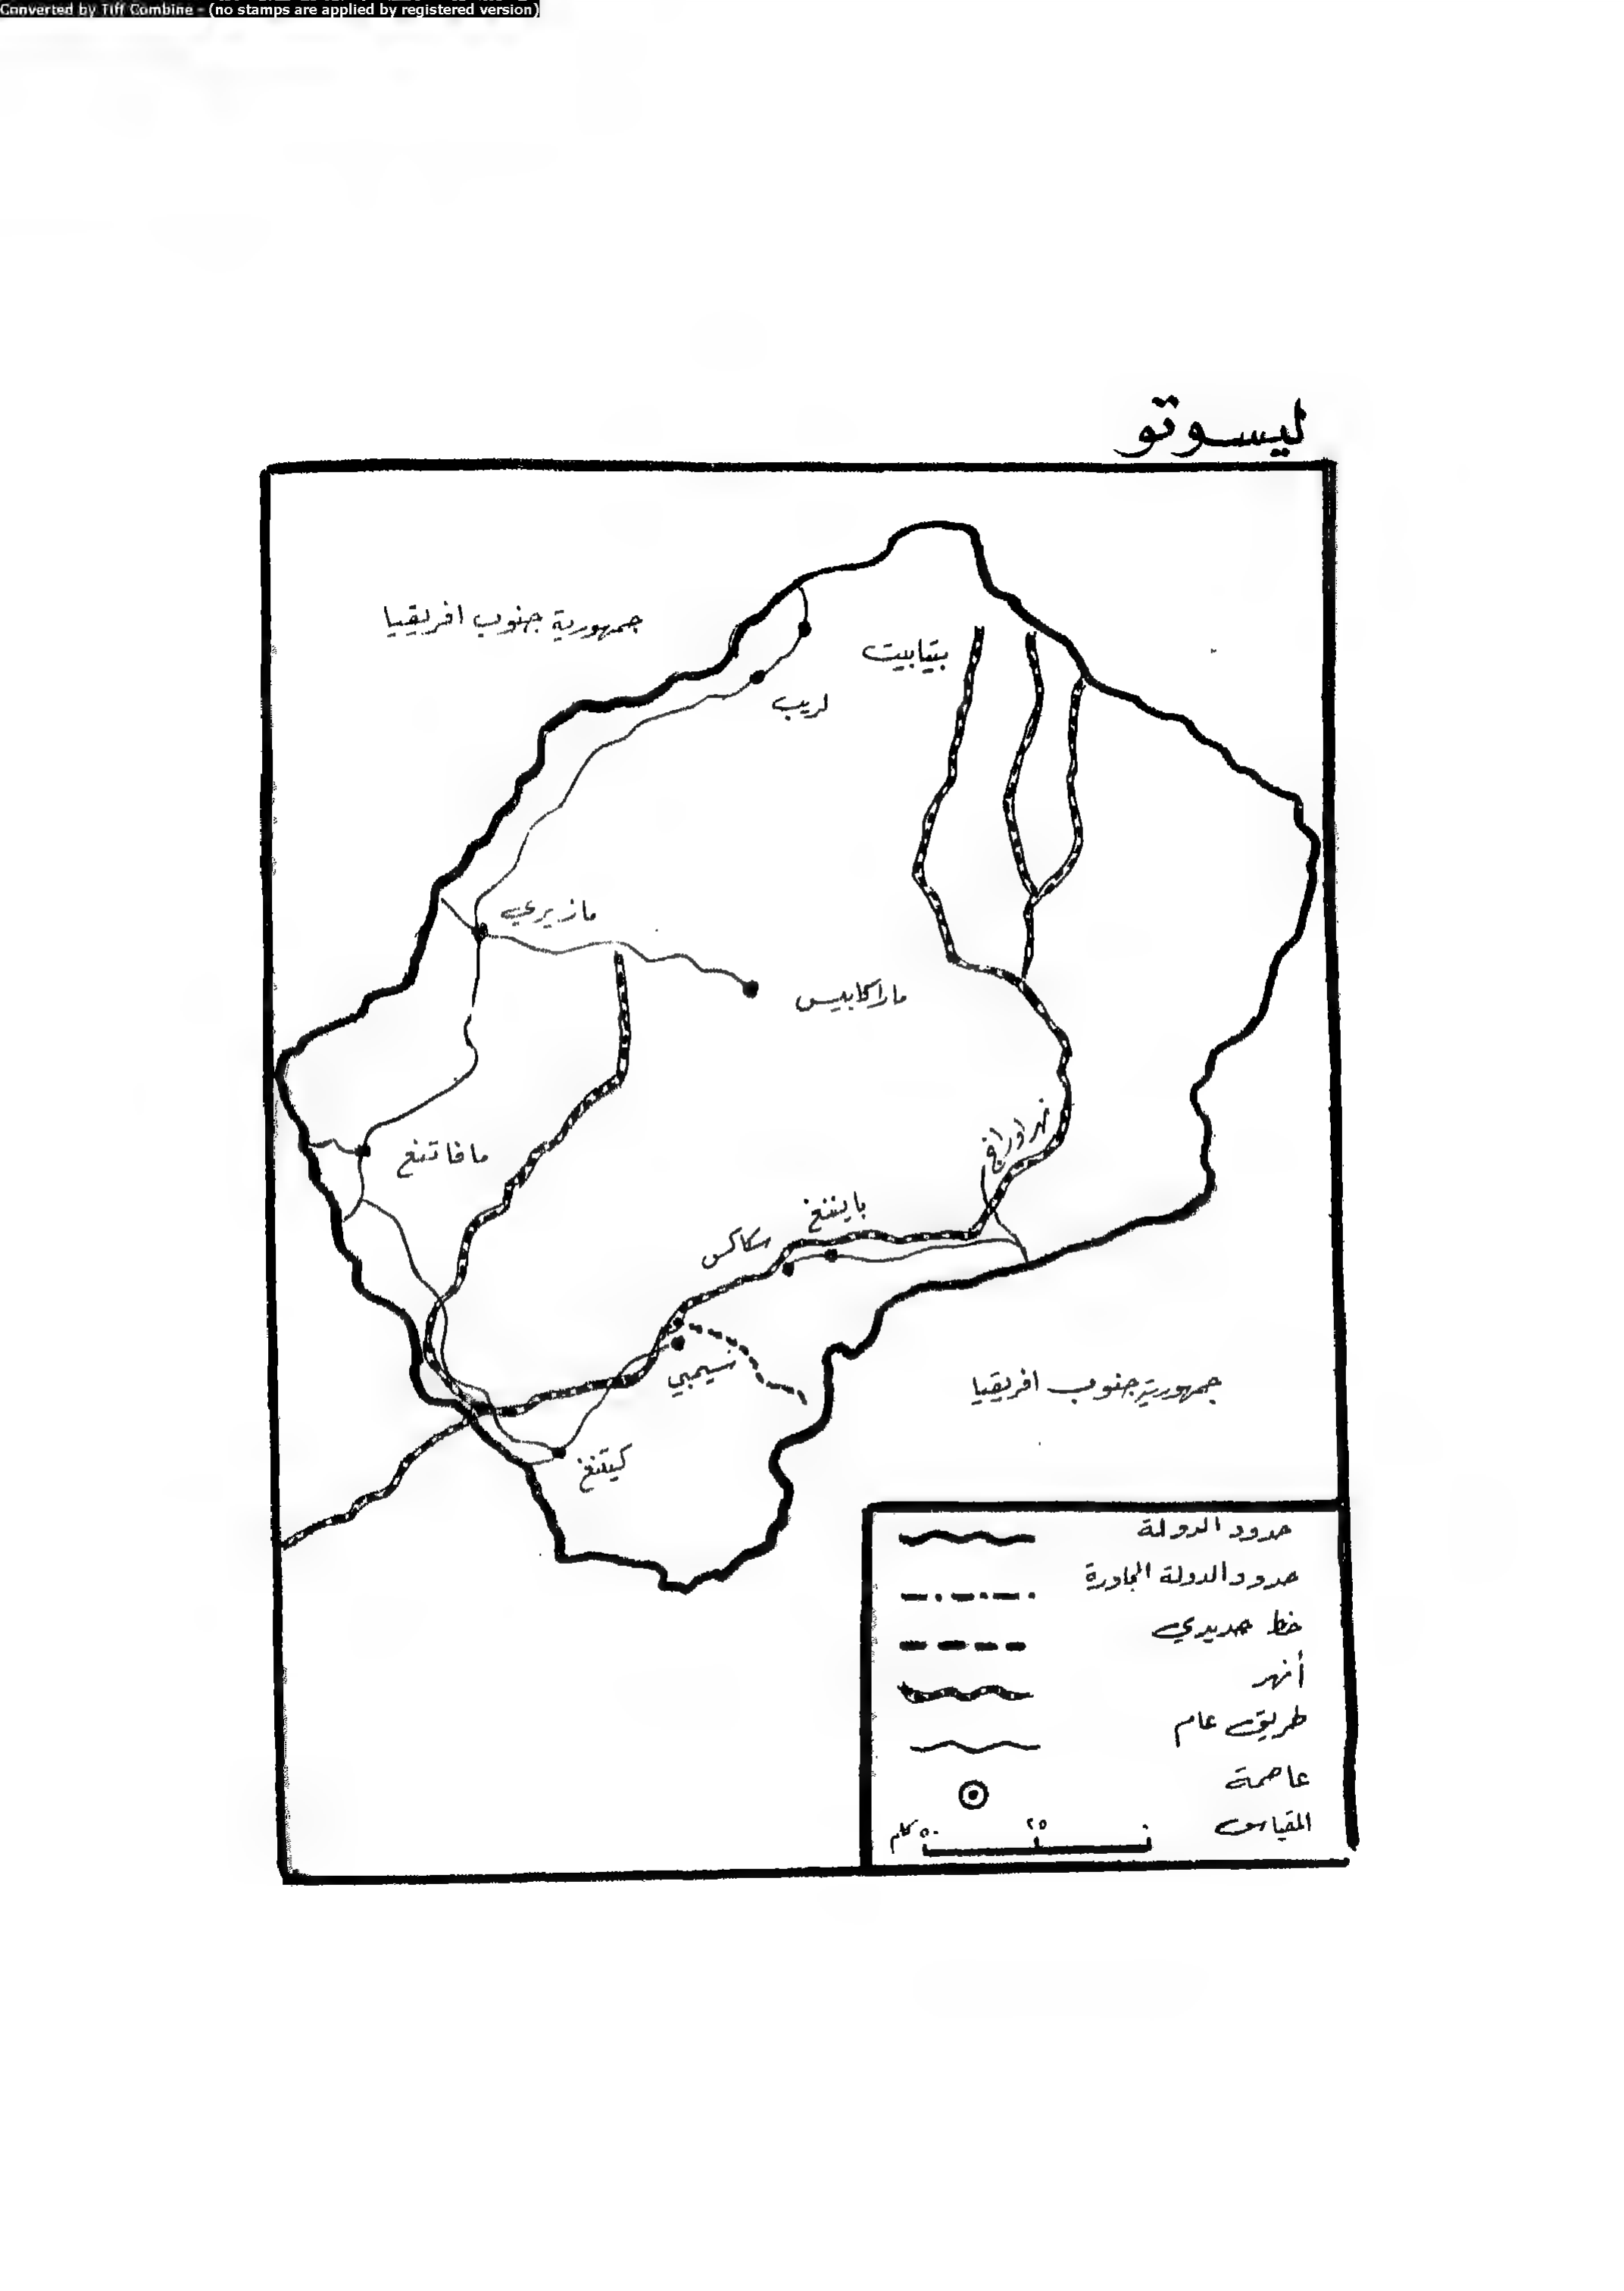 Converted by Tiff Combine - (no stamps are applied by registered version)
ليسوتو
جمهورية جنوب افريقيا
بتيابيت
لريب
مازيري
ماراكابيس
مافاتنغ
نهر اوراج
باينغ
سكاكس
سيمبي
كيتنغ
جمهورية جنوب افريقيا
حدود الدولة
حدود الدولة المجاورة
خط حديدي
أنهر
طريق عام
عاصمة
المقياس
٠ ٢٥ ٥٠ كلم